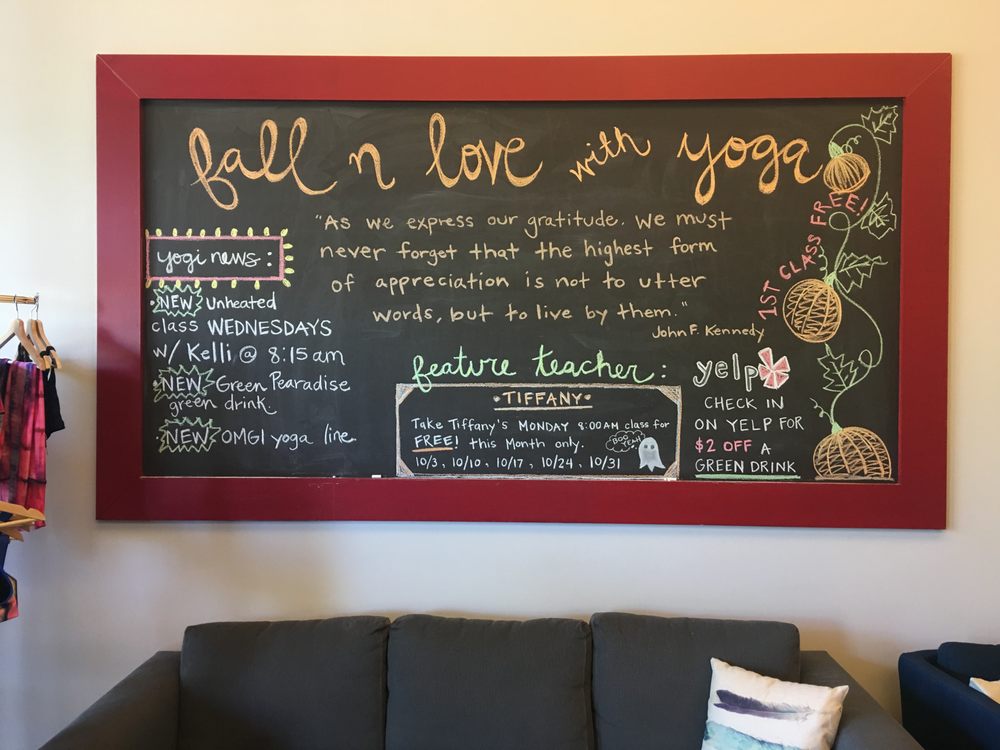 fall n love with yoga
"As we express our gratitude. We must
never forget that the highest form
of appreciation is not to utter
words, but to live by them."
John F. Kennedy
1ST CLASS FREE!
yogi news:
• NEW Unheated
class WEDNESDAYS
w/ Kelli @ 8:15 am
• NEW Green Pearadise
green drink
• NEW OMGI yoga line
feature teacher:
• TIFFANY •
Take Tiffany's MONDAY 8:00AM class for
FREE! this Month only.
10/3, 10/10, 10/17, 10/24, 10/31
BOO YEAH!
yelp
CHECK IN
ON YELP FOR
$2 OFF A
GREEN DRINK